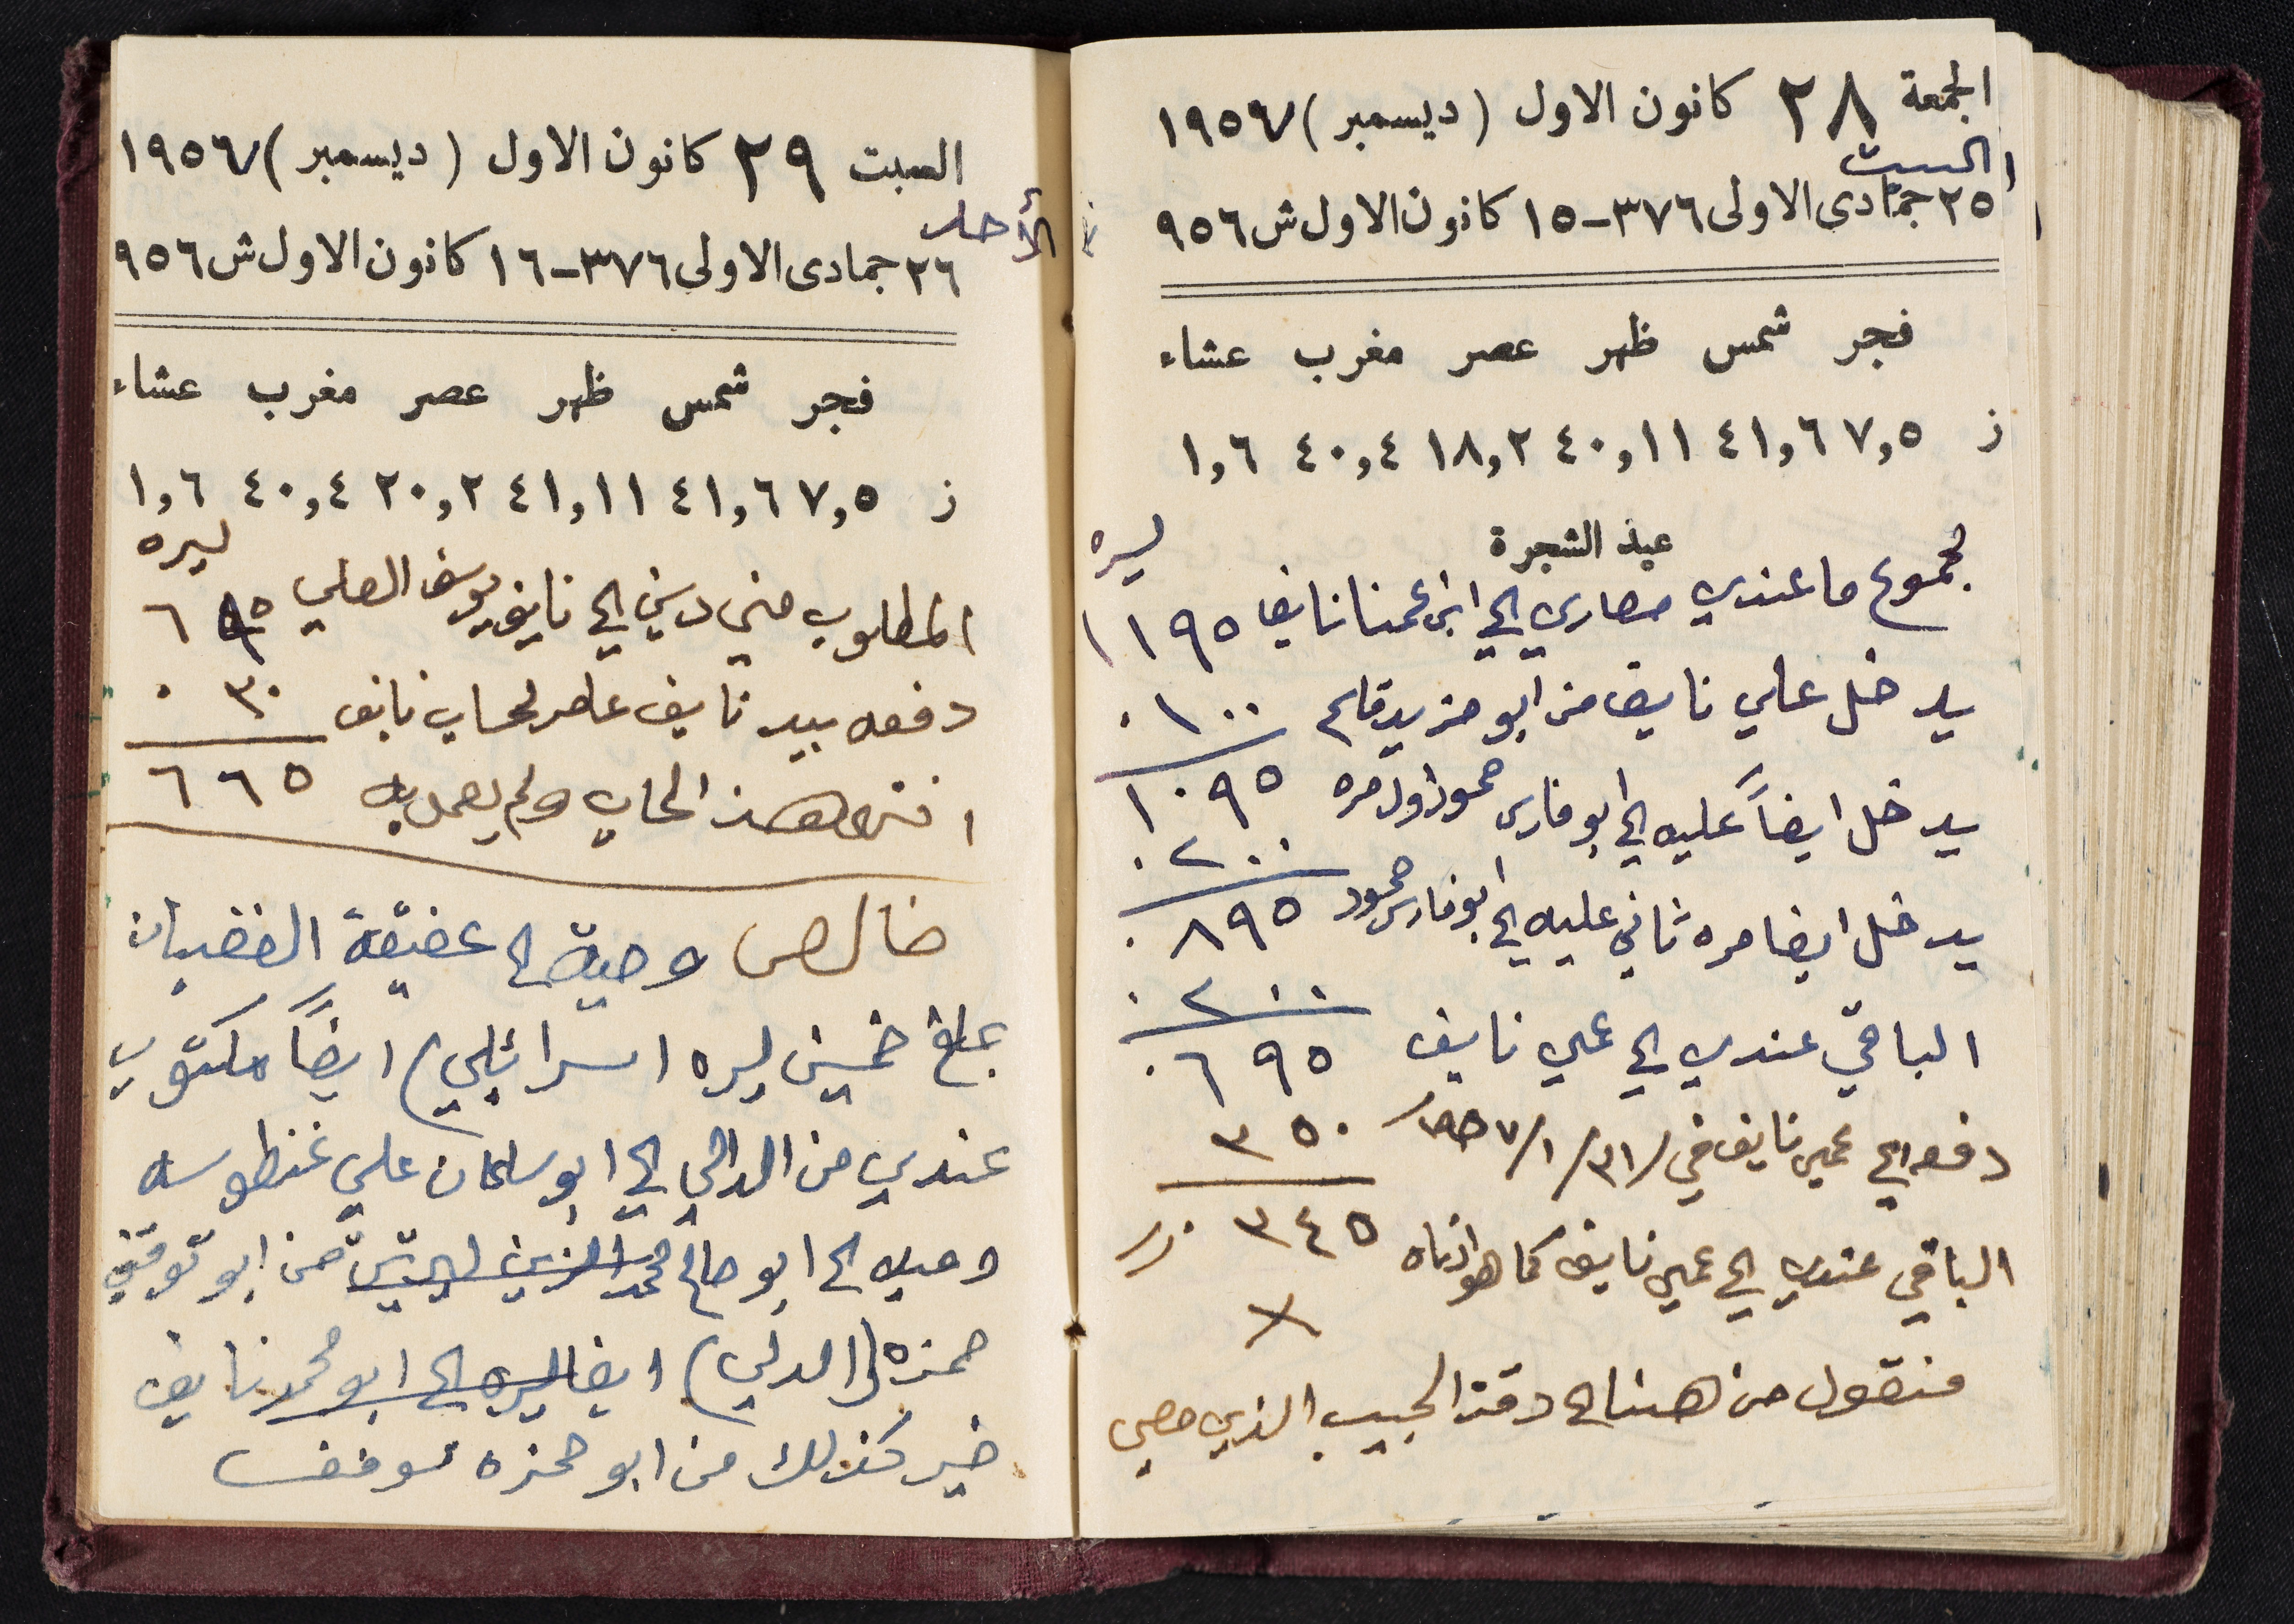 الجمعة ٢٨ كانون الاول (ديسمبر) ١٩٥٦/٧
السبت
٢٥ جمادى الاولى ٣٧٦-١٥ كانون الاول ش ٩٥٦
فجر شمس ظهر عصر مغرب عشاء
ز ٧,٥ ٤١,٦ ٤٠,١١ ١٨,٢ ٤٠,٤ ١,٦
عيد الشجرة
ليره
مجموع ما عندي مصاري الى ابن عمنا نايف ١١٩٥
يدخل علي نايف من ابو مزيد قاسم ٠١٠٠
١٠٩٥
يدخل ايضاً عليه الى ابو فارس محمود اول مره
٠٢٠٠
يدخل ايضا مره ثاني عليه الى ابو فارس محمود ٠٨٩٥
٠٢٠٠
الباقي عندي الى عمي نايف ٠٦٩٥
دفعه الى عمي نايف في ٣١/١/١٩٥٧ ٣٥٠
الباقي عندي الى عمي نايف كما هو ادناه ٣٤٥
منقول من هنا الى دفتر الجيب الذي معي
السبت ٢٩ كانون الاول (ديسمبر) ١٩٥٦/٧
الأحد
٢٦ جمادى الاولى ٣٧٦-١٦ كانون الاول ش ٩٥٦
فجر شمس ظهر عصر مغرب عشاء
ز ٧,٥ ٤١,٦ ٤١,١١ ٢٠,٢ ٤٠,٤ ١,٦
ليره
المطلوب مني دين الى نايف يوسف العلي ٦٩٥
دفعه بيد نايف عامر لحساب نايف ٠٣٠
هذ الحساب ولم يعمل به ٦٦٥
خالص وصية الى عفيفة الغضبان
مبلغ خمسين ليره اسرائيلي) ايضاً مكتوب
عندي من الدالي الى ابو سلمان علي غنطوسه
وصيه الى ابو صالح محمد الزين ليرتين من ابو توفيق
حمزه (الدلي) ايضا ليره الى ابو محمد نايف
خير كذلك من ابو حمزه توفيق